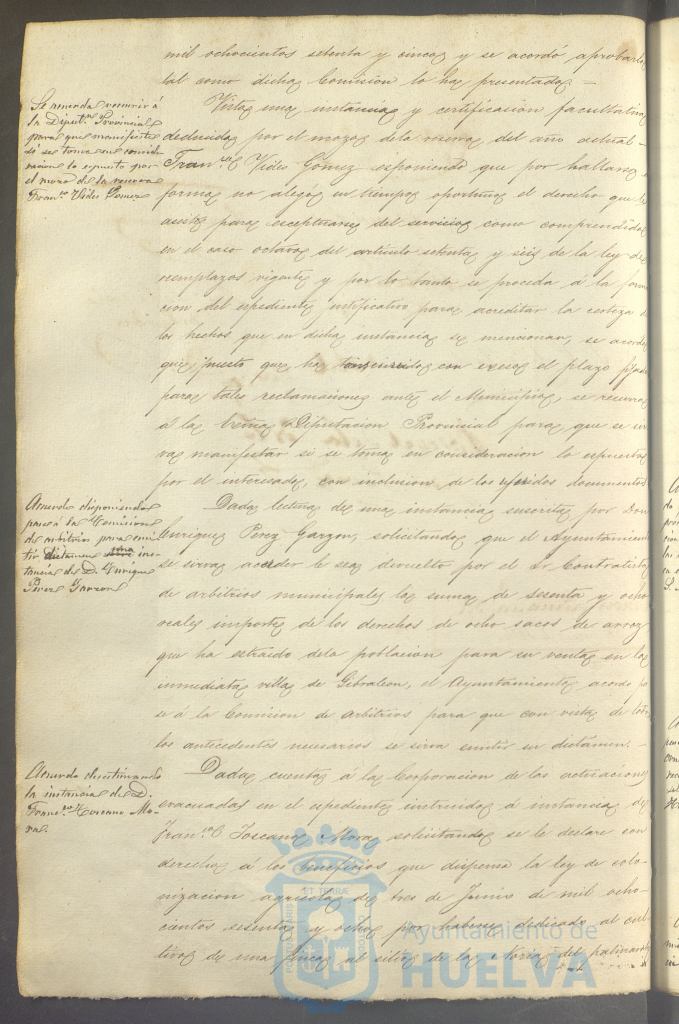 mil ochocientos setenta y cinco y se acordó aprobarlo
tal como dicha Comision lo ha presentado. —
Se acuerda recurrir á
la Diput.ⁿ Provincial
para que manifieste
si se toma en conside
racion lo espuesto por
el mozo de la reserva
Fran.co Vides Gomez
Vista una instancia y certificacion facultativa
deducida por el mozo de la reserva del año actual
Fran.co Vides Gomez esponiendo que por hallarse
no alegó en tiempo oportuno el derecho que le
asiste para esceptuarse del servicio como comprendido
en el caso octavo del artículo setenta y seis de la ley de
reemplazos vigente y por lo tanto se proceda á la forma
cion del espediente justificativo para acreditar la certeza de
los hechos que en dicha instancia se mencionan, se acordó
que puesto que ha transcurrido con exceso el plazo fijado
para tales reclamaciones ante el Municipio, se recurra
á la Exma Diputacion Provincial para que se sir
va manifestar si se toma en consideracion lo espuesto
por el interesado, con inclusion de los referidos documentos.
Acuerdo disponiendo
pase á la Comision
de arbitrios para emi
tir dictamen una ins
tancia de D. Enrique
Perez Garzon
Dada lectura de una instancia suscrita por Don
Enrique Perez Garzon, solicitando que el Ayuntamiento
se sirva acceder le sea devuelto por el Sr Contratista
de arbitrios municipales la suma de sesenta y ocho
reales importe de los derechos de ocho sacos de arroz
que ha estraido de la poblacion para su venta en la
inmediata villa de Gibraleon, el Ayuntamiento acordó pa
se á la Comision de arbitrios para que con vista de todos
los antecedentes necesarios se sirva emitir su dictámen. —
Acuerdo desestimando
la instancia de D.
Franc.co Toscano Mo-
ra.
Dada cuenta á la Corporacion de las actuaciones
evacuadas en el espediente instruido á instancia de
Fran.co Toscano Mora solicitando se le declare con
derecho á los beneficios que dispensa la ley de colo-
nizacion agricola de tres de Junio de mil ocho-
cientos sesenta y ocho por haberse dedicado al cul
tivo de una finca al sitio de las Norias del
Ayuntamiento de
HUELVA